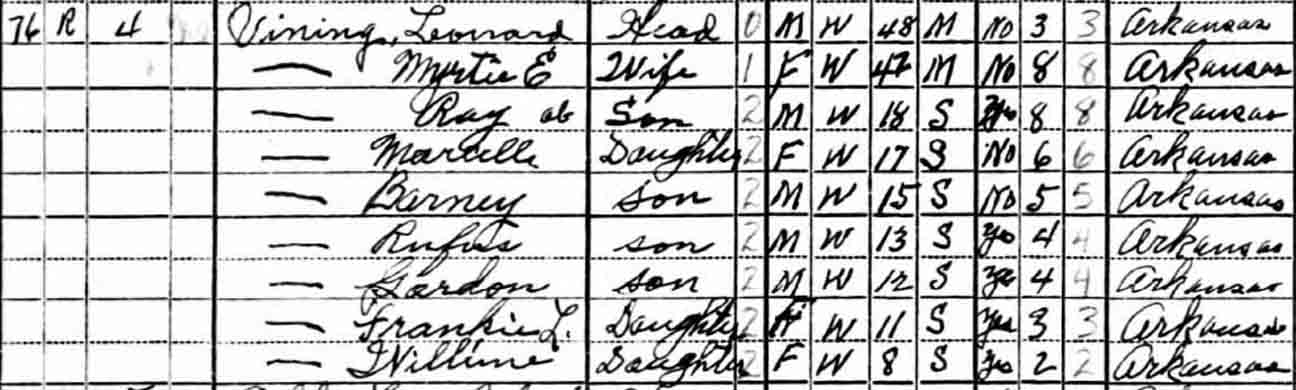 76 R 4 Vining, Leonard Head 0 M W 48 M No 3 3 Arkansas
— Myrtie E Wife 1 F W 42 M No 8 8 Arkansas
— Ray ab Son 2 M W 18 S Yes 8 8 Arkansas
— Marcille Daughter 2 F W 17 S No 6 6 Arkansas
— Barney son 2 M W 15 S No 5 5 Arkansas
— Rufus son 2 M W 13 S Yes 4 4 Arkansas
— Gardon son 2 M W 12 S Yes 4 4 Arkansas
— Frankie L. Daughter 2 F W 11 S Yes 3 3 Arkansas
— Willime Daughter 2 F W 8 S Yes 2 2 Arkansas